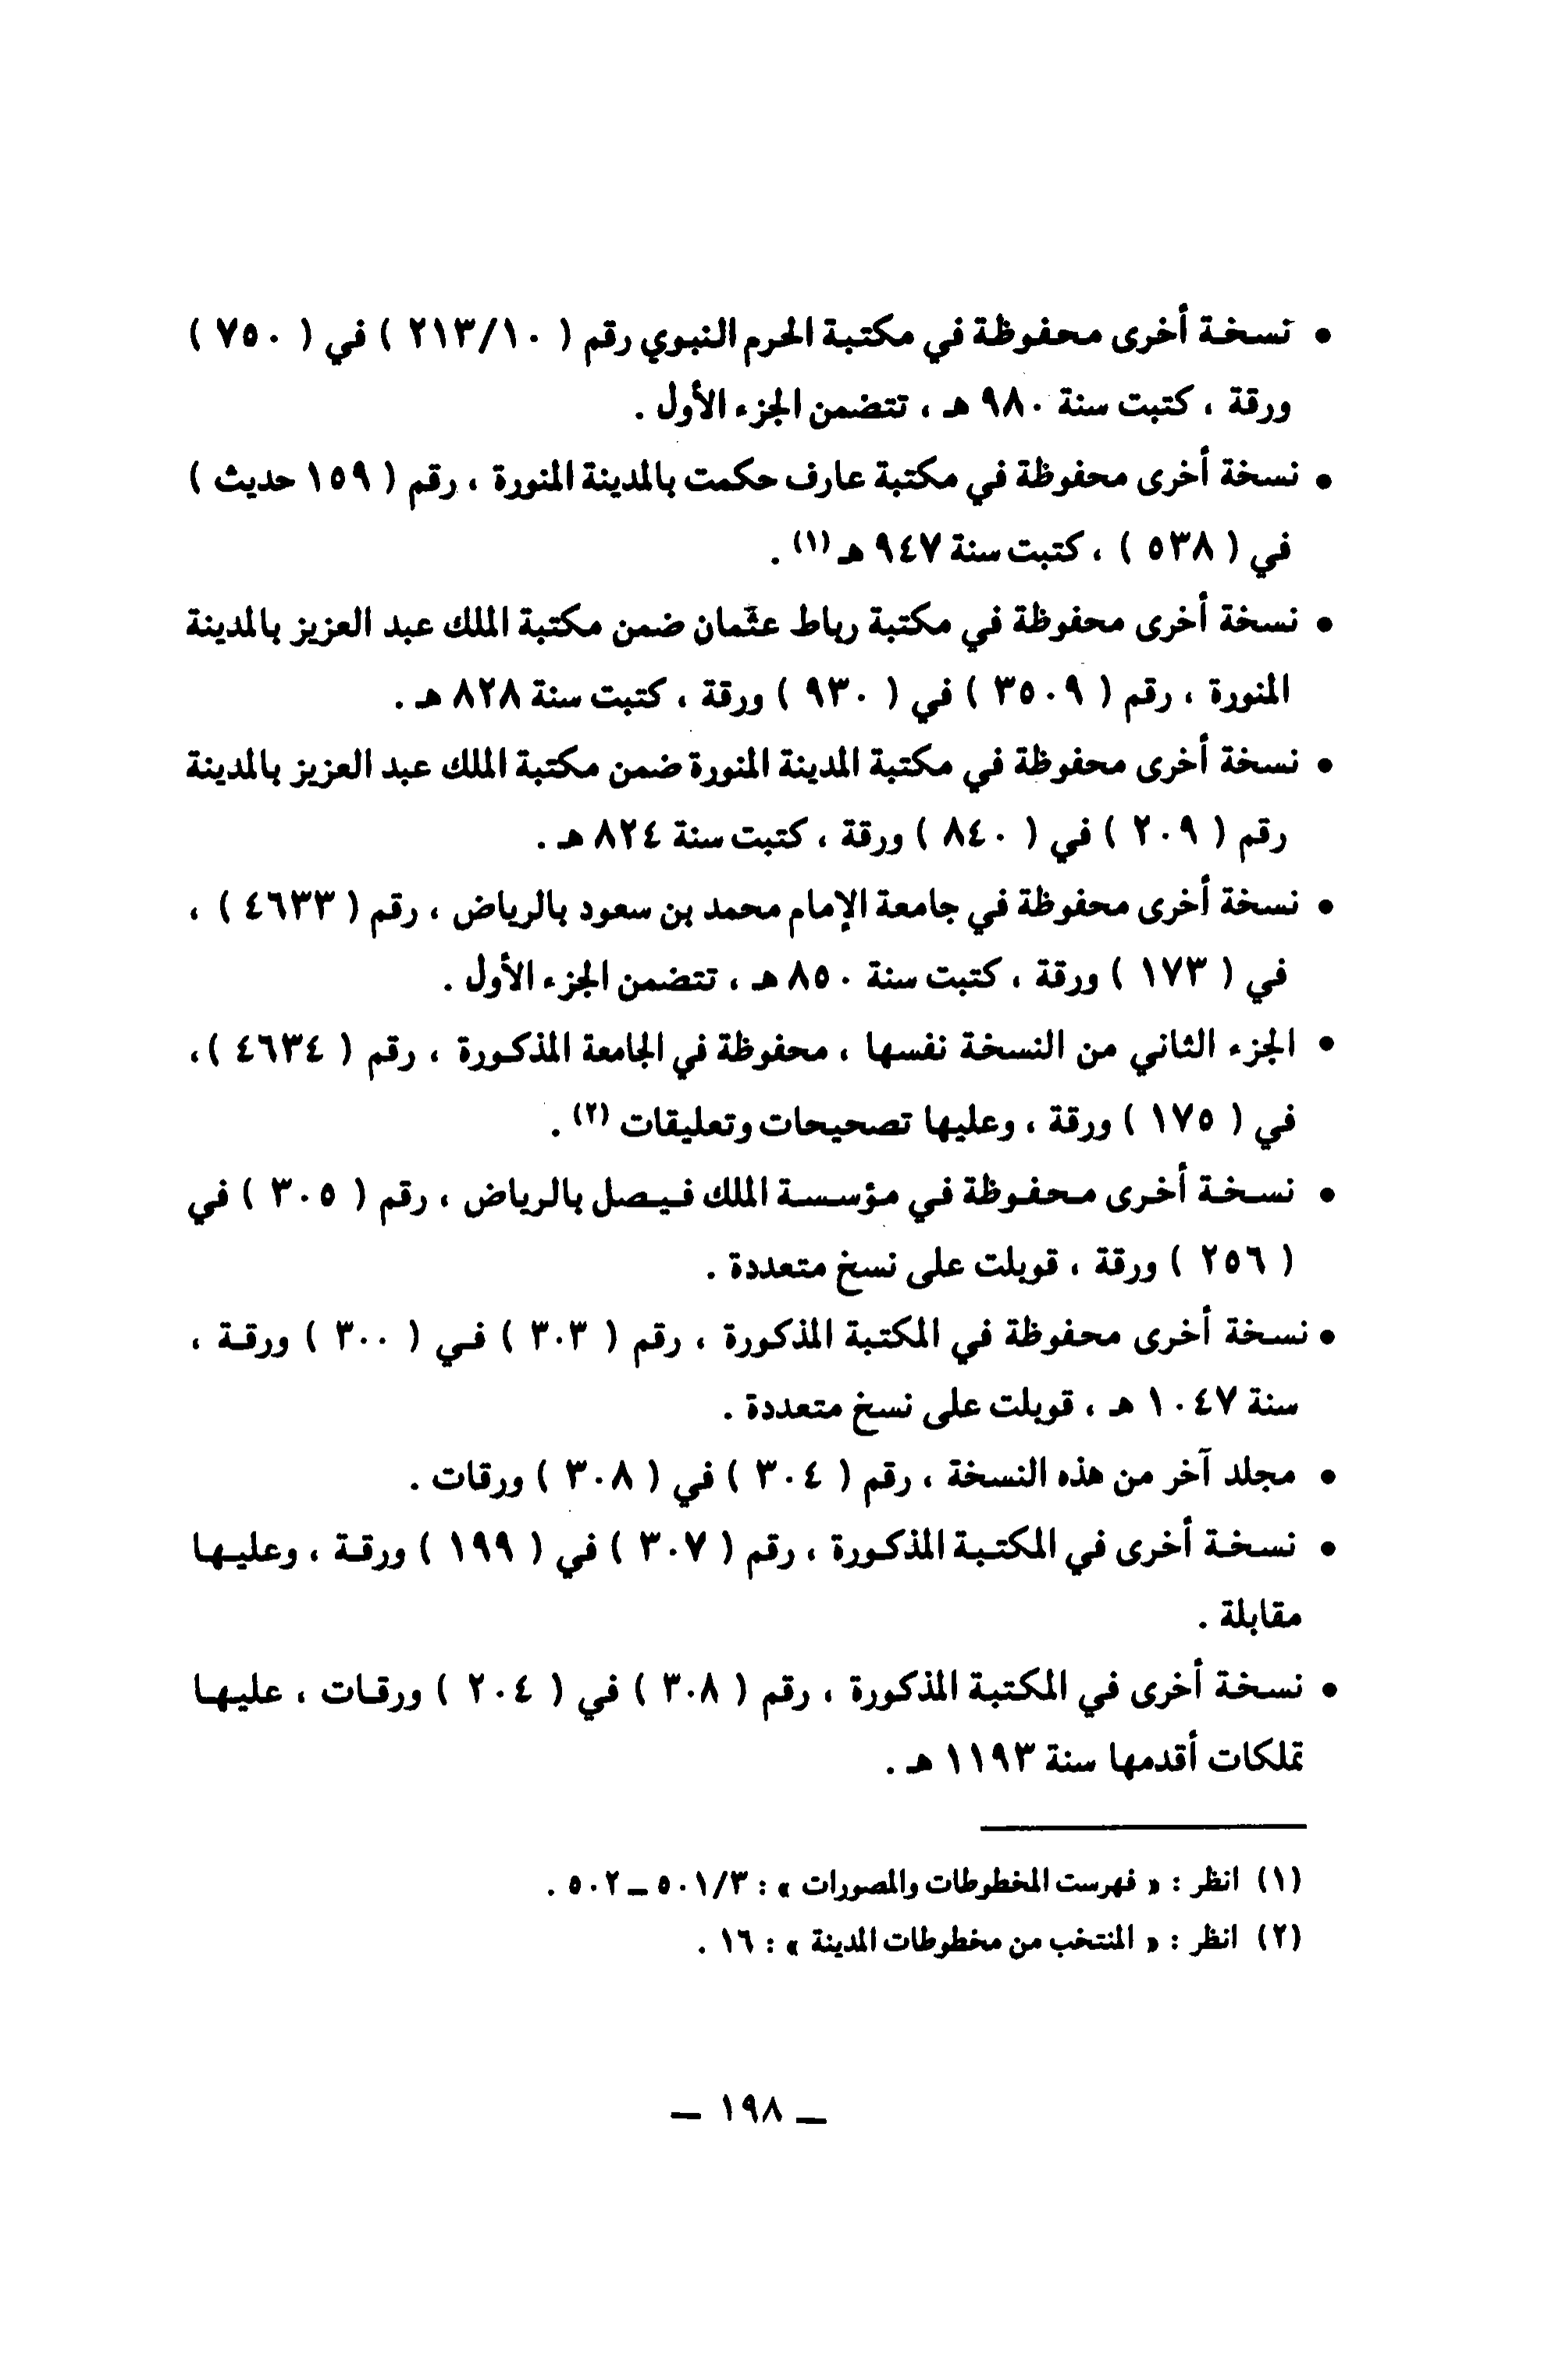 • نسخة أخرى محفوظة في مكتبة الحرم النبوي رقم ( ٢١٣/١٠ ) في ( ٧٥٠ )
ورقة ، كتبت سنة ٩٨٠ هـ ، تتضمن الجزء الأول .
• نسخة أخرى محفوظة في مكتبة عارف حكمت بالمدينة المنورة ، رقم ( ١٥٩ حديث )
في ( ٥٣٨ ) ، كتبت سنة ٩٤٧ هـ (١) .
• نسخة أخرى محفوظة في مكتبة رباط عثمان ضمن مكتبة الملك عبد العزيز بالمدينة
المنورة ، رقم ( ٣٥٠٩ ) في ( ٩٣٠ ) ورقة ، كتبت سنة ٨٢٨ هـ .
• نسخة أخرى محفوظة في مكتبة المدينة المنورة ضمن مكتبة الملك عبد العزيز بالمدينة
رقم ( ٢٠٩ ) في ( ٨٤٠ ) ورقة ، كتبت سنة ٨٢٤ هـ .
• نسخة أخرى محفوظة في جامعة الإمام محمد بن سعود بالرياض ، رقم ( ٤٦٣٣ ) ،
في ( ١٧٣ ) ورقة ، كتبت سنة ٨٥٠ هـ ، تتضمن الجزء الأول .
• الجزء الثاني من النسخة نفسها ، محفوظة في الجامعة المذكورة ، رقم ( ٤٦٣٤ ) ،
في ( ١٧٥ ) ورقة ، وعليها تصحيحات وتعليقات (٢) .
• نسخة أخرى محفوظة في مؤسسة الملك فيصل بالرياض ، رقم ( ٣٠٥ ) في
( ٢٥٦ ) ورقة ، قوبلت على نسخ متعددة .
• نسخة أخرى محفوظة في المكتبة المذكورة ، رقم ( ٣٠٣ ) في ( ٣٠٠ ) ورقة ،
سنة ١٠٤٧ هـ ، قوبلت على نسخ متعددة .
• مجلد آخر من هذه النسخة ، رقم ( ٣٠٤ ) في ( ٣٠٨ ) ورقات .
• نسخة أخرى في المكتبة المذكورة ، رقم ( ٣٠٧ ) في ( ١٩٩ ) ورقة ، وعليها
مقابلة .
• نسخة أخرى في المكتبة المذكورة ، رقم ( ٣٠٨ ) في ( ٢٠٤ ) ورقات ، عليها
تملكات أقدمها سنة ١١٩٣ هـ .
(١) انظر : « فهرست المخطوطات والمصورات » : ٥٠١/٣ ــ ٥٠٢ .
(٢) انظر : « المنتخب من مخطوطات المدينة » : ١٦ .
ــ ١٩٨ ــ